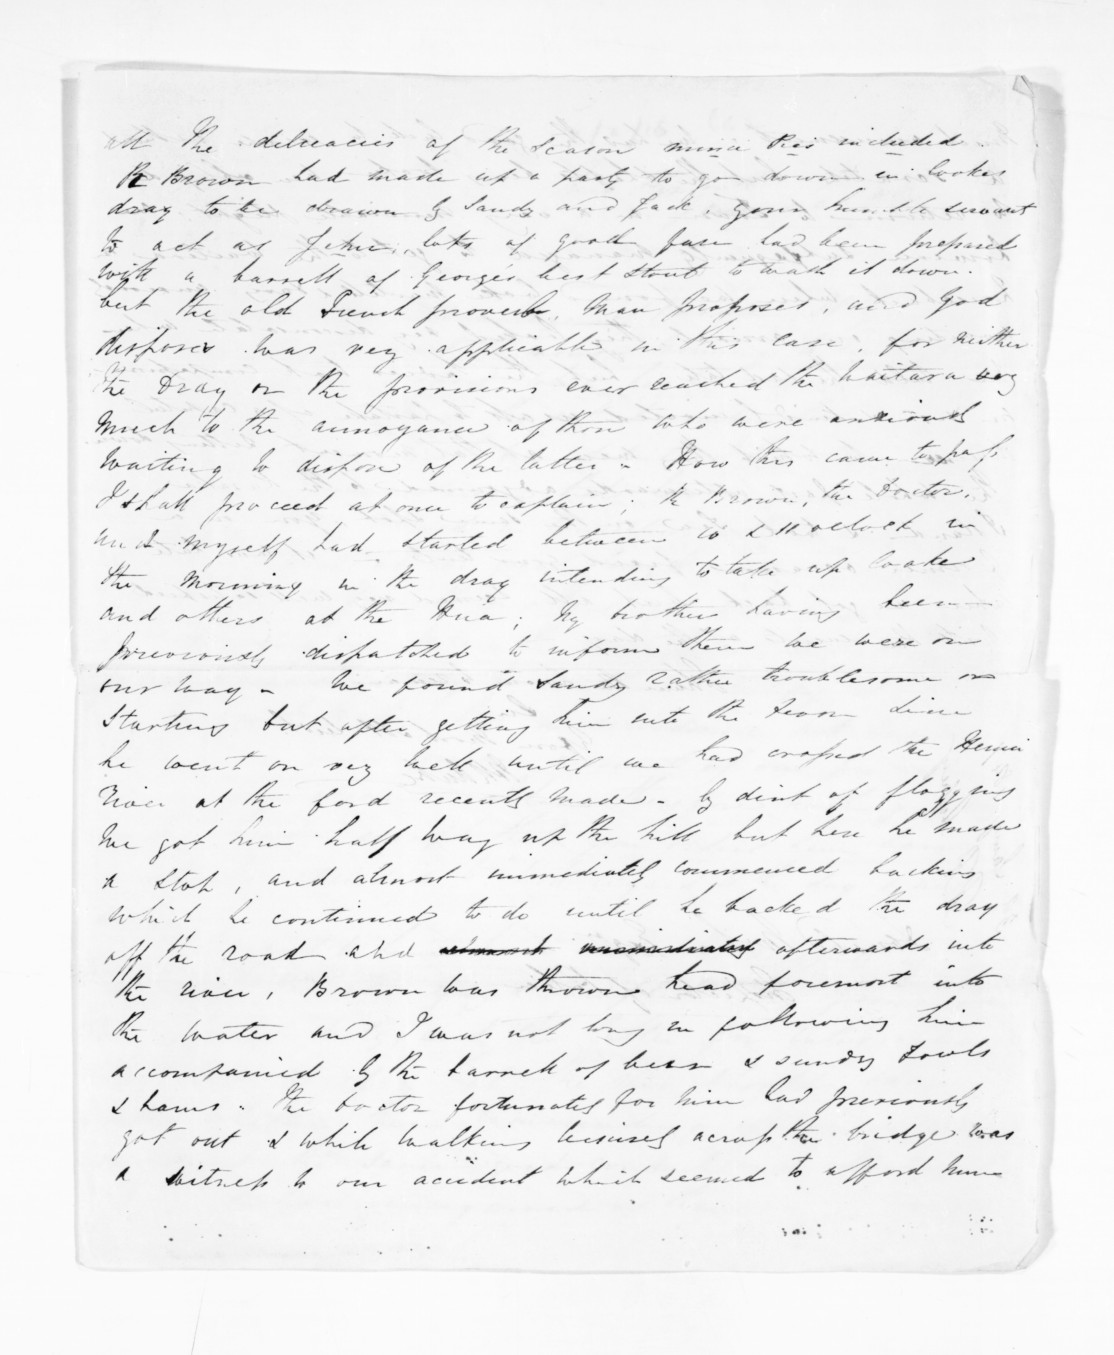 all the delicacies of the season mince Pies included.
R Brown had made up a party to go down in Cookes
dray to be drawn by Sandy and Jack, your humble servant
to act as Jehu, lots of good fare had been prepared
with a barrell of George's best stout to wash it down.
but the old French proverb, Man proposes, and God
disposes was very applicable in this case, for neither
the Dray or the provisions ever reached the Waitara very
much to the annoyance of those who were anxiously
waiting to dispose of the latter - How this came to pass
I shall proceed at once to explain; R Brown, the Doctor,
and myself had started between 10 & 11 oclock in
the morning in the dray intending to take up Cooke
and others at the Hua; My brother having been
previously dispatched to inform them we were on
our way - We found Sandy rather troublesome on
starting but after getting him into the Devon Line
he went on very well until we had crossed the Henui
river at the ford recently made - by dint of flogging
we got him half way up the hill but here he made
a stop, and almost immediately commenced backing
which he continued to do until he backed the dray
off the road and almost immediately afterwards into
the river, Brown was thrown head foremost into
the water and I was not long in following him
accompanied by the barrell of beer & sundry Fowls
& hams. The Doctor fortunately for him had previously
got out & while walking leisurely across the bridge was
a witness to our accident which seemed to afford him